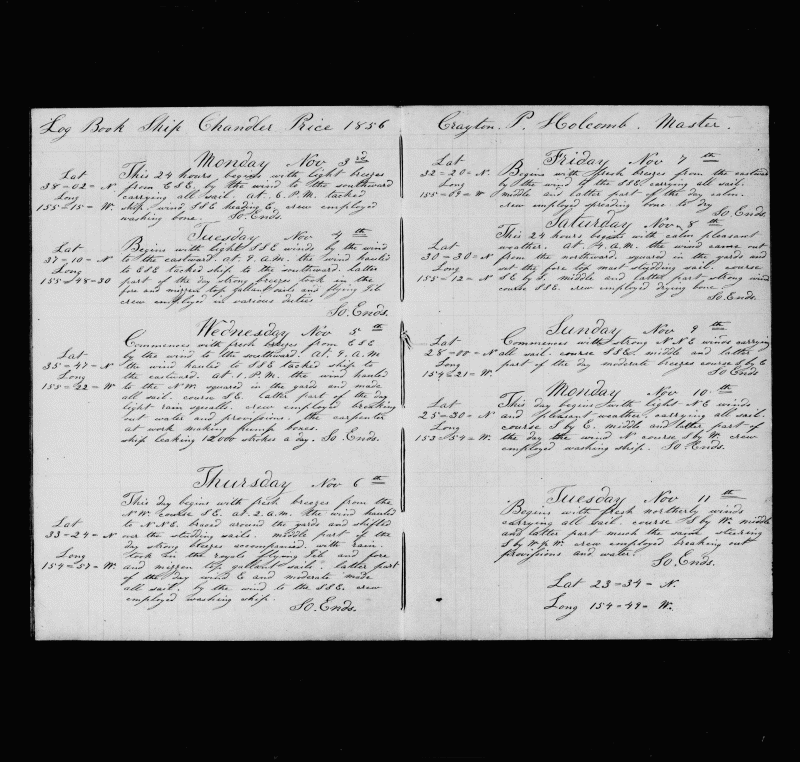 Log Book Ship Chandler Price 1856
Monday Nov 3rd
Lat
38=02= N
Long
155=15= W.
This 24 hours begins with light breezes
from ESE. by the wind to the southward
carrying all sail. at 6 P.M. tacked
ship wind SSE heading E. crew employed
washing bone. So Ends.
Tuesday Nov 4th
Lat
37=10= N
Long
155=48=30
Begins with light SSE winds by the wind
to the eastward. at 9. A.M. the wind hauled
to ESE tacked ship to the southward. latter
part of the day strong breezes took in the
fore and mizzen top gallant sails and flying jib
crew employed in various duties
So. Ends.
Wednesday Nov 5th
Lat
35=47= N
Long
155=22= W
Commences with fresh breezes from ESE
by the wind to the southward. At. 9. A.M
the wind hauled to SSE tacked ship to
the eastward. at 1. P.M. the wind hauled
to the NW. squared in the yards and made
all sail. course SE. latter part of the day
light rain squalls. crew employed breaking
out water and provisions. the carpenter
at work making pump boxes.
ship leaking 12000 strokes a day. So. Ends.
Thursday Nov 6th
Lat
33=24= N
Long
154=57= W.
This day begins with fresh breezes from the
NW. course SE. at. 2. A.M. the wind hauled
to NNE. braced around the yards and shifted
over the studding sails. middle part of the
day strong breezes accompanied with rain.
took in the royals flying jib and fore
and mizzen top gallant sails. latter part
of the day wind E and moderate made
all sail. by the wind to the SSE. crew
employed washing ship.
So. Ends.
Crayton. P. Holcomb. Master.
Friday Nov 7th
Lat
32=20= N.
Long
155=09= W
Begins with fresh breezes from the eastward
by the wind to the SSE, carrying all sail.
middle and latter part of the day calm.
crew employed spreading bone to dry
So. Ends.
Saturday Nov. 8th
Lat
30=30= N
Long
155=12= N
This 24 hours begins with calm pleasant
weather. At. 4. A.M. the wind came out
from the northward. squared in the yards and
set the fore top mast studding sail. course
SE by S. middle and latter part strong wind
course SSE. crew employed drying bone.
So. Ends.
Sunday Nov 9th
Lat
28=00= N
Long
154=21= W.
Commences with strong NNE winds carrying
all sail. course SSE. middle and latter
part of the day moderate breezes course S by E
So Ends
Monday Nov 10th
Lat
25=30= N
Long
153=54= W.
This day begins with light NE winds
and pleasant weather. carrying all sail.
course S by E. middle and latter part of
the day the wind N course S by W. crew
employed washing ship. So. Ends.
Tuesday Nov 11th
Begins with fresh northerly winds
carrying all sail. course S by W. middle
and latter part much the same steering
S by W&W. crew employed breaking out
provisions and water.
So. Ends.
Lat 23=34= N.
Long 154=49= W.